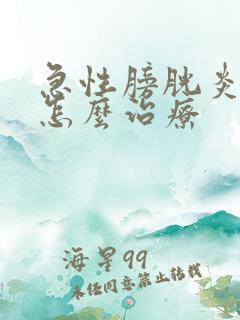 急性膀胱炎
怎麼治療
海星99
未任同意禁止转载